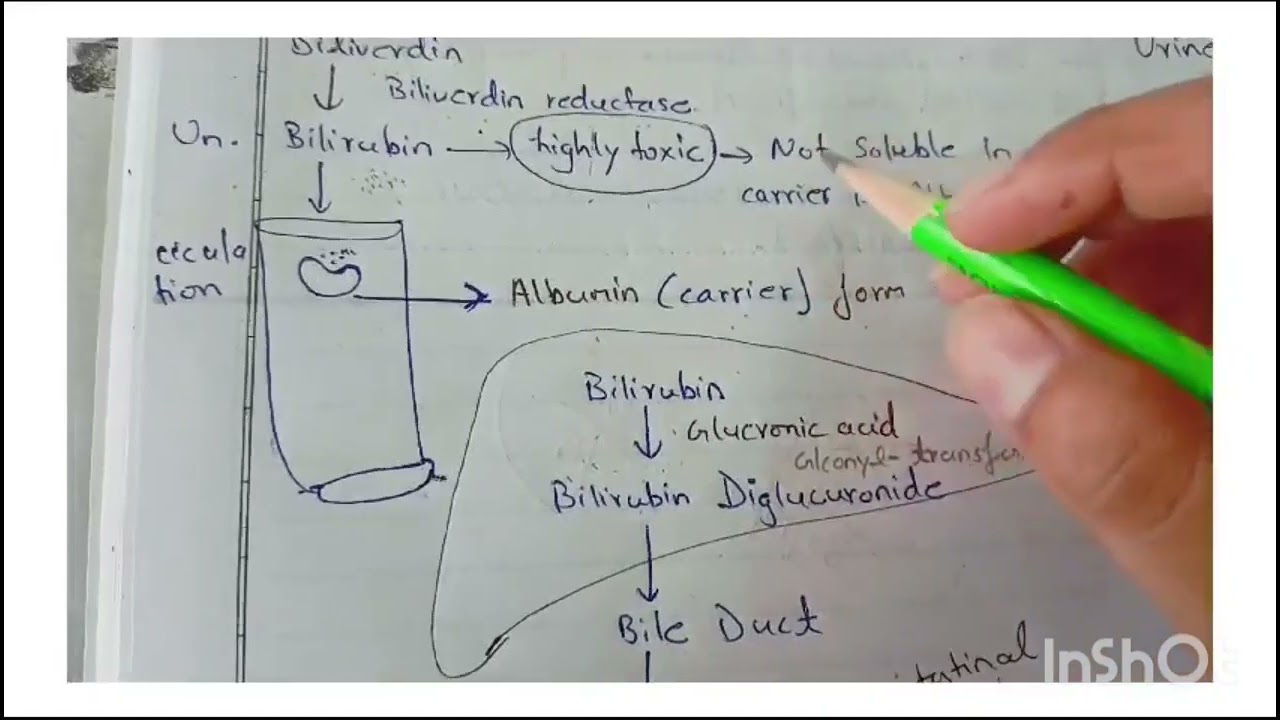 Biliverdin
Urine
Biliverdin reductase.
Un. Bilirubin → highly toxic → Not Soluble in
carrier
circula
tion
Albumin (carrier) form
Bilirubin
Glucronic acid
Bilirubin Diglucuronide
Bile Duct
InShOt